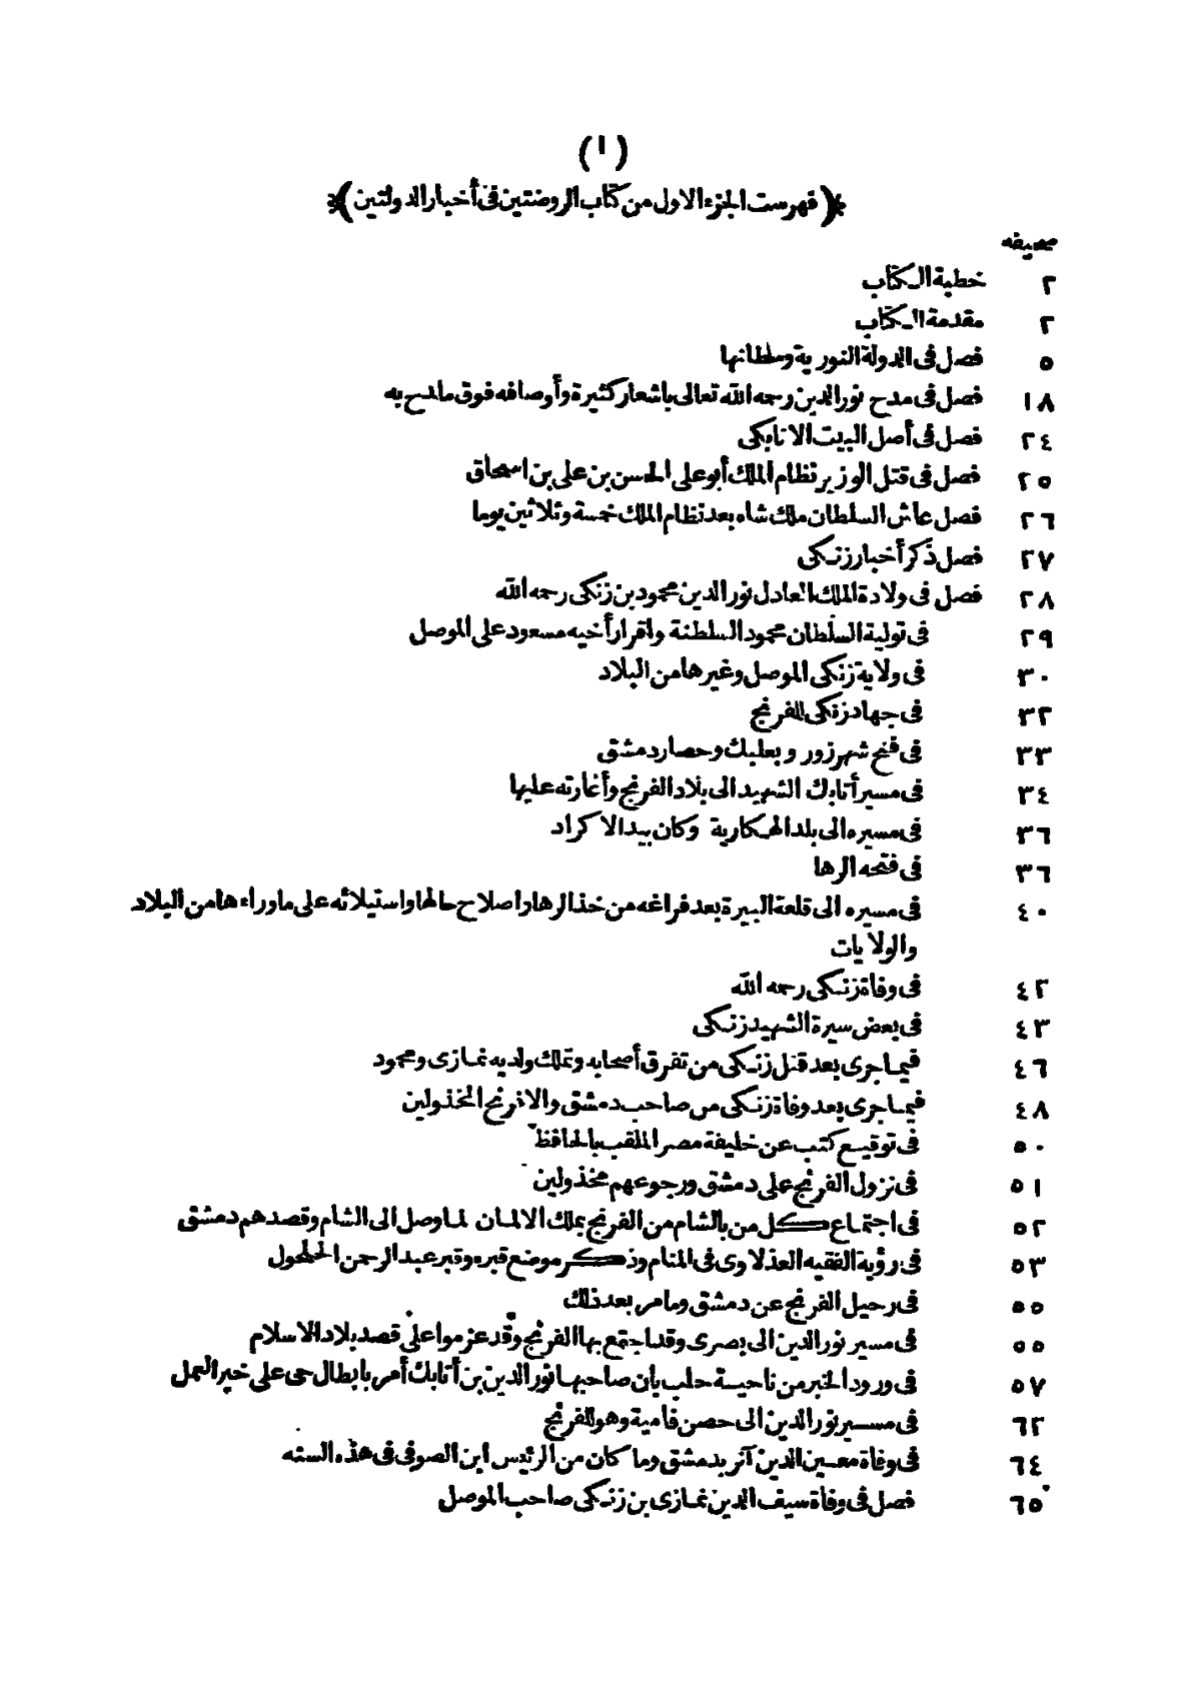 (١)
﴿فهرست الجزء الاول من كتاب الروضتين فى أخبار الدولتين﴾
صحيفه
٢ خطبة الكتاب
٢ مقدمة الكتاب
٥ فصل فى الدولة النورية وسلطانها
١٨ فصل فى مدح نور الدين رحمه الله تعالى باشعار كثيرة وأوصافه فوق ما مدح به
٢٤ فصل فى أصل البيت الاتابكى
٢٥ فصل فى قتل الوزير نظام الملك أبو على الحسن بن على بن اسحاق
٢٦ فصل عاش السلطان ملك شاه بعد نظام الملك خمسة وثلاثين يوما
٢٧ فصل ذكر أخبار زنكى
٢٨ فصل فى ولادة الملك العادل نور الدين محمود بن زنكى رحمه الله
٢٩ فى تولية السلطان محمود السلطنة واقرار أخيه مسعود على الموصل
٣٠ فى ولاية زنكى الموصل وغيرها من البلاد
٣٢ فى جهاد زنكى للفرنج
٣٣ فى فتح شهرزور وبعلبك وحصار دمشق
٣٤ فى مسير أتابك الشهيد الى بلاد الفرنج وأغارته عليها
٣٦ فى مسيره الى بلد الهكارية وكان بيد الاكراد
٣٦ فى فتحه الرها
٤٠ فى مسيره الى قلعة البيرة بعد فراغه من أخذ الرها واصلاح حالها واستيلائه على ما وراءها من البلاد
والولايات
٤٢ فى وفاة زنكى رحمه الله
٤٣ فى بعض سيرة الشهيد زنكى
٤٦ فيما جرى بعد قتل زنكى من تفرق أصحابه وتملك ولديه غازى ومحمود
٤٨ فيما جرى بعد وفاة زنكى من صاحب دمشق والافرنج المخذولين
٥٠ فى توقيع كتب عن خليفة مصر الملقب بالحافظ
٥١ فى نزول الفرنج على دمشق ورجوعهم مخذولين
٥٢ فى اجتماع كل من بالشام من الفرنج بملك الالمان لما وصل الى الشام وقصدهم دمشق
٥٣ فى رؤية الفقيه العذلاوى فى المنام وذكر موضع قبره وقبر عبد الرحمن الحلحول
٥٥ فى رحيل الفرنج عن دمشق وما مر بعد ذلك
٥٥ فى مسير نور الدين الى بصرى وقد اجتمع بها الفرنج وقد عزموا على قصد بلاد الاسلام
٥٧ فى ورود الخبر من ناحية حلب بأن صاحبها نور الدين بن أتابك أمر بابطال حى على خير العمل
٦٢ فى مسير نور الدين الى حصن فامية وهو للفرنج
٦٤ فى وفاة معين الدين آنر بدمشق وما كان من الرئيس ابن الصوفى فى هذه السنه
٦٥ فصل فى وفاة سيف الدين غازى بن زنكى صاحب الموصل